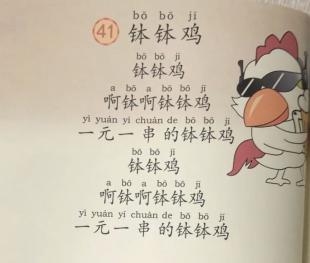 bō bō jī
41 钵钵鸡
bō bō jī
钵钵鸡
a bō a bō bō jī
啊钵啊钵钵鸡
yì yuán yí chuàn de bō bō jī
一元一串的钵钵鸡
bō bō jī
钵钵鸡
a bō a bō bō jī
啊钵啊钵钵鸡
yì yuán yí chuàn de bō bō jī
一元一串的钵钵鸡